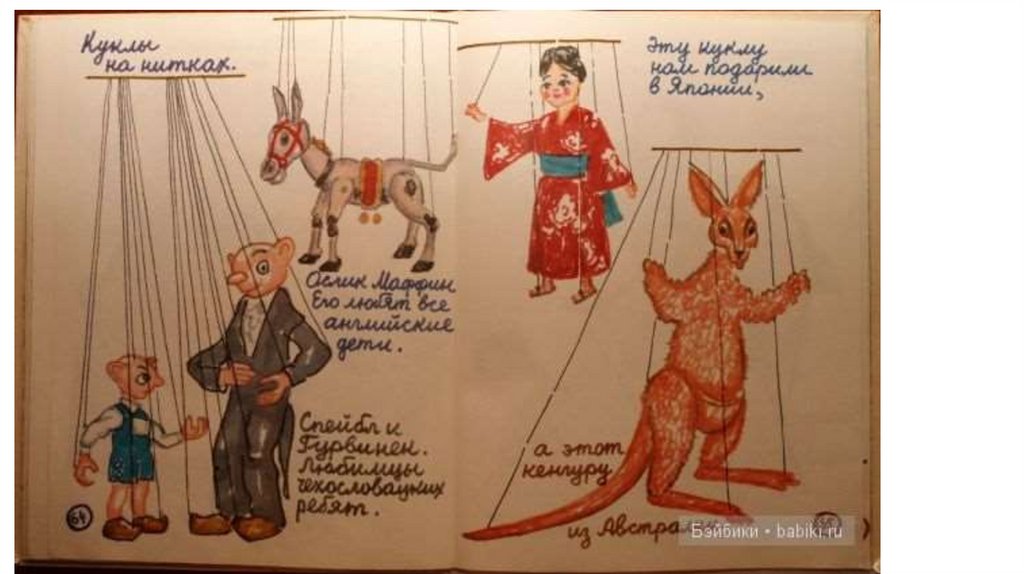 Куклы
на нитках.
Ослик Маффин
Его любят все
английские
дети.
Спейбл и
Гурвинек.
Любимцы
чехословацких
ребят.
64
Эту куклу
нам подарили
в Японии,
а этот
кенгуру
из Австралии
Бэйбики • babiki.ru